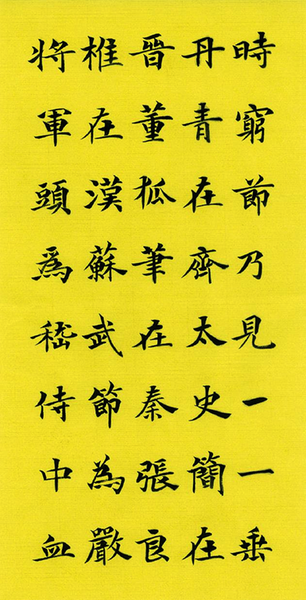 時窮節乃見一一垂
丹青在齊太史簡在
晉董狐筆在秦張良
椎在漢蘇武節為嚴
將軍頭爲嵇侍中血